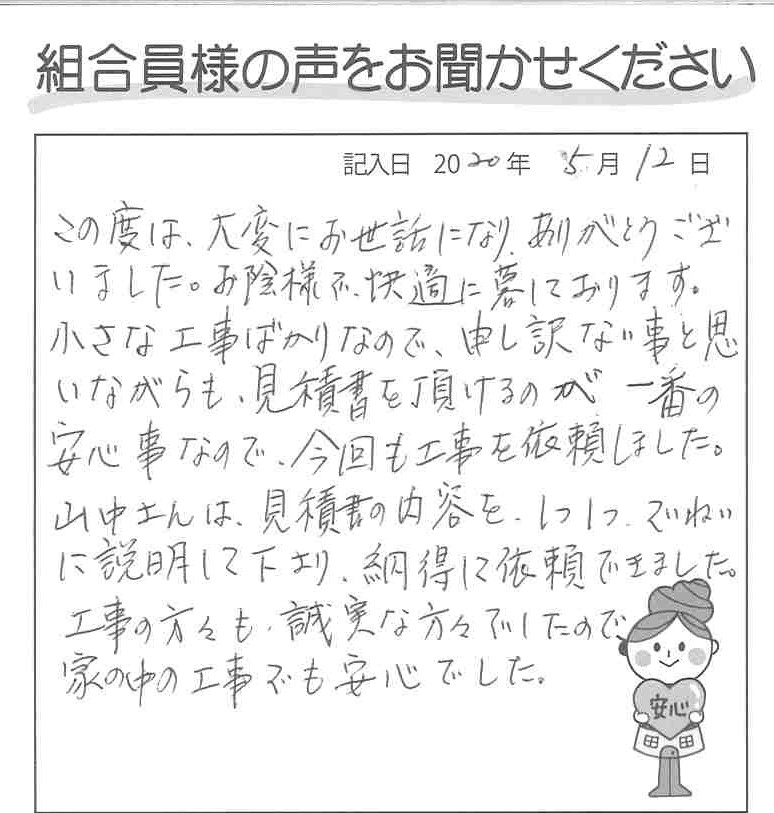 組合員様の声をお聞かせください
記入日 2020年 5月12日
この度は、大変にお世話になり、ありがとうござ
いました。お陰様で、快適に暮しております。
小さな工事ばかりなので、申し訳ない事と思
いながらも、見積書を頂けるのが一番の
安心事なので、今回も工事を依頼しました。
山中さんは、見積書の内容を、1つ1つ、ていねい
に説明して下さり、納得して依頼できました。
工事の方々も、誠実な方々でしたので、
家の中の工事でも安心でした。
安心